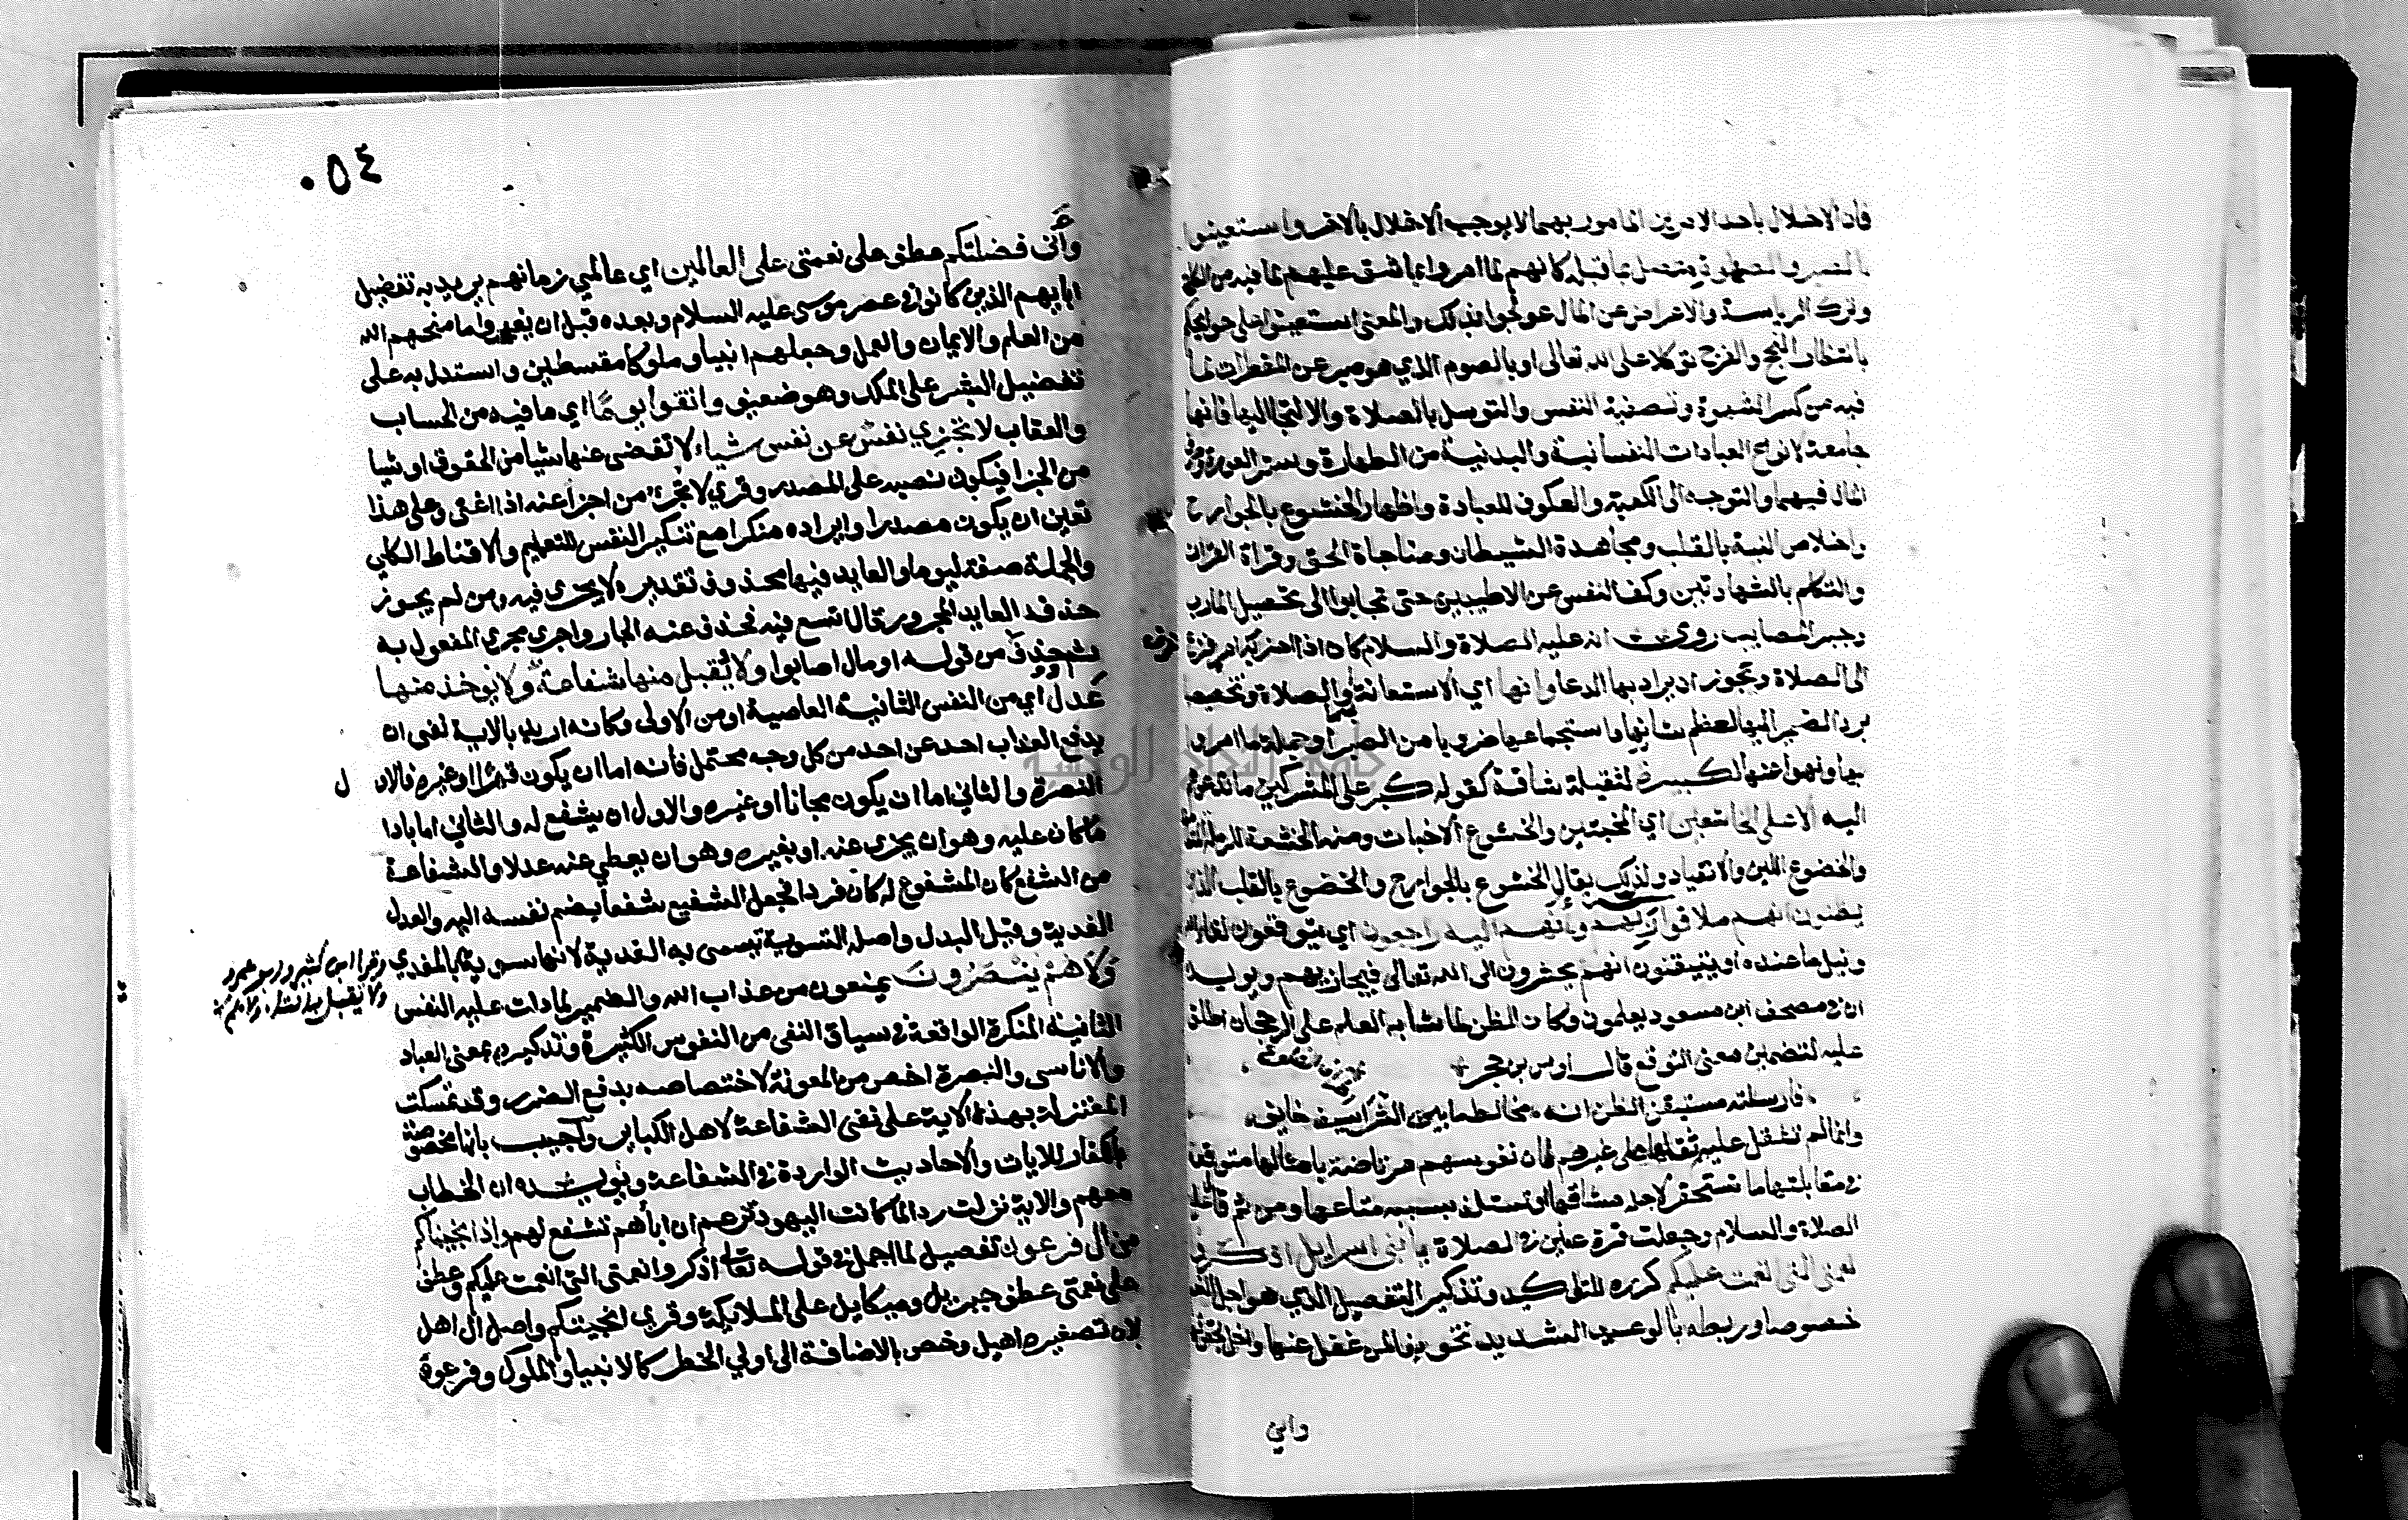 فان الاخلال باحد الامرين المامور بهما لا يوجب الاخلال بالاخر واستعينوا
بالصبر والصلوة متصل بما قبله كانهم لما امروا بما شق عليهم لما فيه من الكلفة
وترك الرياسة والاعراض عن المال عولجوا بذلك والمعنى استعينوا على حوايجكم
بانتظار النجح والفرج توكلا على الله تعالى او بالصوم الذي هو صبر عن المفطرات لما
فيه من كسر الشهوة وتصفية النفس والتوسل بالصلاة والالتجا اليها فانها
جامعة لانواع العبادات النفسانية والبدنية من الطهارة وستر العورة وصرف
المال فيهما والتوجه الى الكعبة والعكوف للعبادة واظهار الخشوع بالجوارح
واخلاص النية بالقلب ومجاهدة الشيطان ومناجاة الحق وقراة القران
والتكلم بالشهادتين وكف النفس عن الاطيبين حتى تجابوا الى تحصيل المارب
وجبر المصايب روى انه عليه الصلاة والسلام كان اذا حزبه امر فزع
الى الصلاة وتجوز ان يراد بها الدعا وانها اي الاستعانة بهما والصلاة وتخصيصها
برد الضمير اليها لعظم شانها واستجماعها ضروبا من الصبر او جملة ما امروا
بها ونهوا عنها لكبيرة لثقيلة شاقة كقوله كبر على المشركين ما تدعوهم
اليه الا على الخاشعين اي المخبتين والخشوع الاخبات ومنه الخشعة للرملة
والخضوع اللين والانقياد ولذلك يقال الخشوع بالجوارح والخضوع بالقلب الذين
يظنون انهم ملاقوا ربهم وانهم اليه راجعون اي يتوقعون لقا الله
ونيل ما عنده او يتيقنون انهم يحشرون الى الله تعالى فيجازيهم ويويده
ان في مصحف ابن مسعود يعلمون وكان الظن لما شابه العلم على الرجحان اطلق
عليه لتضمين معنى التوقع قال اوس بن حجر
فارسلته مستيقن الظن انه مخالط ما بين الشراسيف خايف
وانما لم تثقل عليهم ثقلها على غيرهم فان نفوسهم مرتاضة بامثالها متوقعة
في مقابلتها ما تستحقر لاجله مشاقها وتستلذ بسببه متاعبها ومن ثم قال عليه
الصلاة والسلام وجعلت قرة عيني في الصلاة يا بني اسرايل اذكروا
نعمتي التي انعمت عليكم كرره للتاكيد وتذكير التفضيل الذي هو اجل النعم
خصوصا وربطه بالوعيد الشديد تخويفا لمن غفل عنها واخل بحقوقها
واني
٠٥٤
واني فضلتكم عطف على نعمتي على العالمين اي عالمي زمانهم يريد به تفضيل
ابايهم الذين كانوا في عصر موسى عليه السلام وبعده قبل ان يغيروا ما منحهم الله
من العلم والايمان والعمل وجعلهم انبيا وملوكا مقسطين واستدل به على
تفضيل البشر على الملك وهو ضعيف واتقوا يوما اي ما فيه من الحساب
والعقاب لا تجزي نفس عن نفس شياء لا تقضى عنها شيا من الحقوق او شيا
من الجزا فيكون نصبه على المصدر وقري لا تجزئ من اجزا عنه اذا اغنى وعلى هذا
تعين ان يكون مصدرا وايراده منكرا مع تنكير النفس للتعميم والاقناط الكلي
والجملة صفة ليوما والعايد فيها محذوف تقديره لا يجزى فيه ومن لم يجوز
حذف العايد المجرور قال اتسع فيه فحذف عنه الجار واجري مجرى المفعول به
ثم حذف من قوله او مال اصابوا ولا يقبل منها شفاعة ولا يوخذ منها
عدل اي من النفس الثانية العاصية او من الاولى وكانه اريد بالاية نفى ان
يدفع العذاب احد عن احد من كل وجه محتمل فانه اما ان يكون قهرا او غيره فالاول
النصرة والثاني اما ان يكون مجانا او غيره والاول ان يشفع له والثاني اما بادا
ما كان عليه وهو ان يجزى عنه او بغيره وهو ان يعطي عنه عدلا والشفاعة
من الشفع كان المشفوع له كان فردا فجعل الشفيع شفعا بضم نفسه اليه والعدل
الفدية وقيل البدل واصله التسوية تيسمى به الفدية لانها سويت بالمفدي
وقرا ابن كثير وابو عمرو
ولا تقبل بالتاء
ولا هم ينصرون يمنعون من عذاب الله والضمير لما دلت عليه النفس
الثانية المنكرة الواقعة في سياق النفى من النفوس الكثيرة وتذكيره بمعنى العباد
والاناسى والنصرة اخص من المعونة لاختصاصه بدفع الضرر وقد تمسكت
المعتزلة بهذه الاية على نفى الشفاعة لاهل الكباير واجيب بانها مخصوصة
بالكفار للايات والاحاديث الواردة في الشفاعة ويويده ان الخطاب
معهم والاية نزلت ردا لما كانت اليهود تزعم ان اباهم تشفع لهم واذ انجيناكم
من ال فرعون تفصيل لما اجمل في قوله تعالى اذكروا نعمتي التي انعمت عليكم وعطف
على نعمتي عطف جبريل وميكايل على الملائكة وقري انجيتكم واصل ال اهل
لان تصغيره اهيل وخص بالاضافة الى اولي الخطر كالانبيا والملوك وفرعون